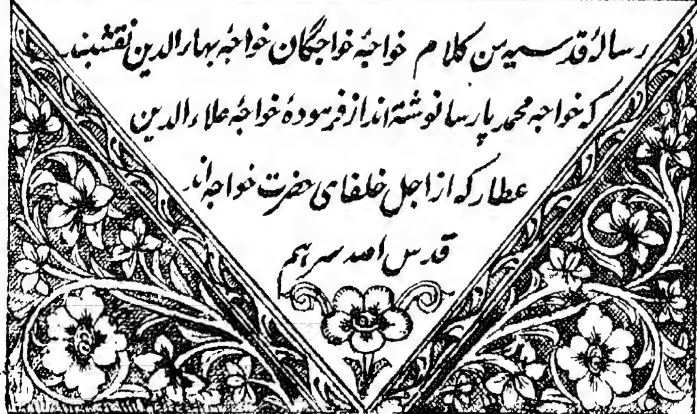 رسالۂ قدسیہ من کلام خواجۂ خواجگان خواجہ بہاء الدین نقشبند
کہ خواجہ محمد پارسا نوشتہ اند از فرمودۂ خواجہ علاء الدین
عطار کہ از اجل خلفای حضرت خواجہ اند
قدس اللہ سرہم